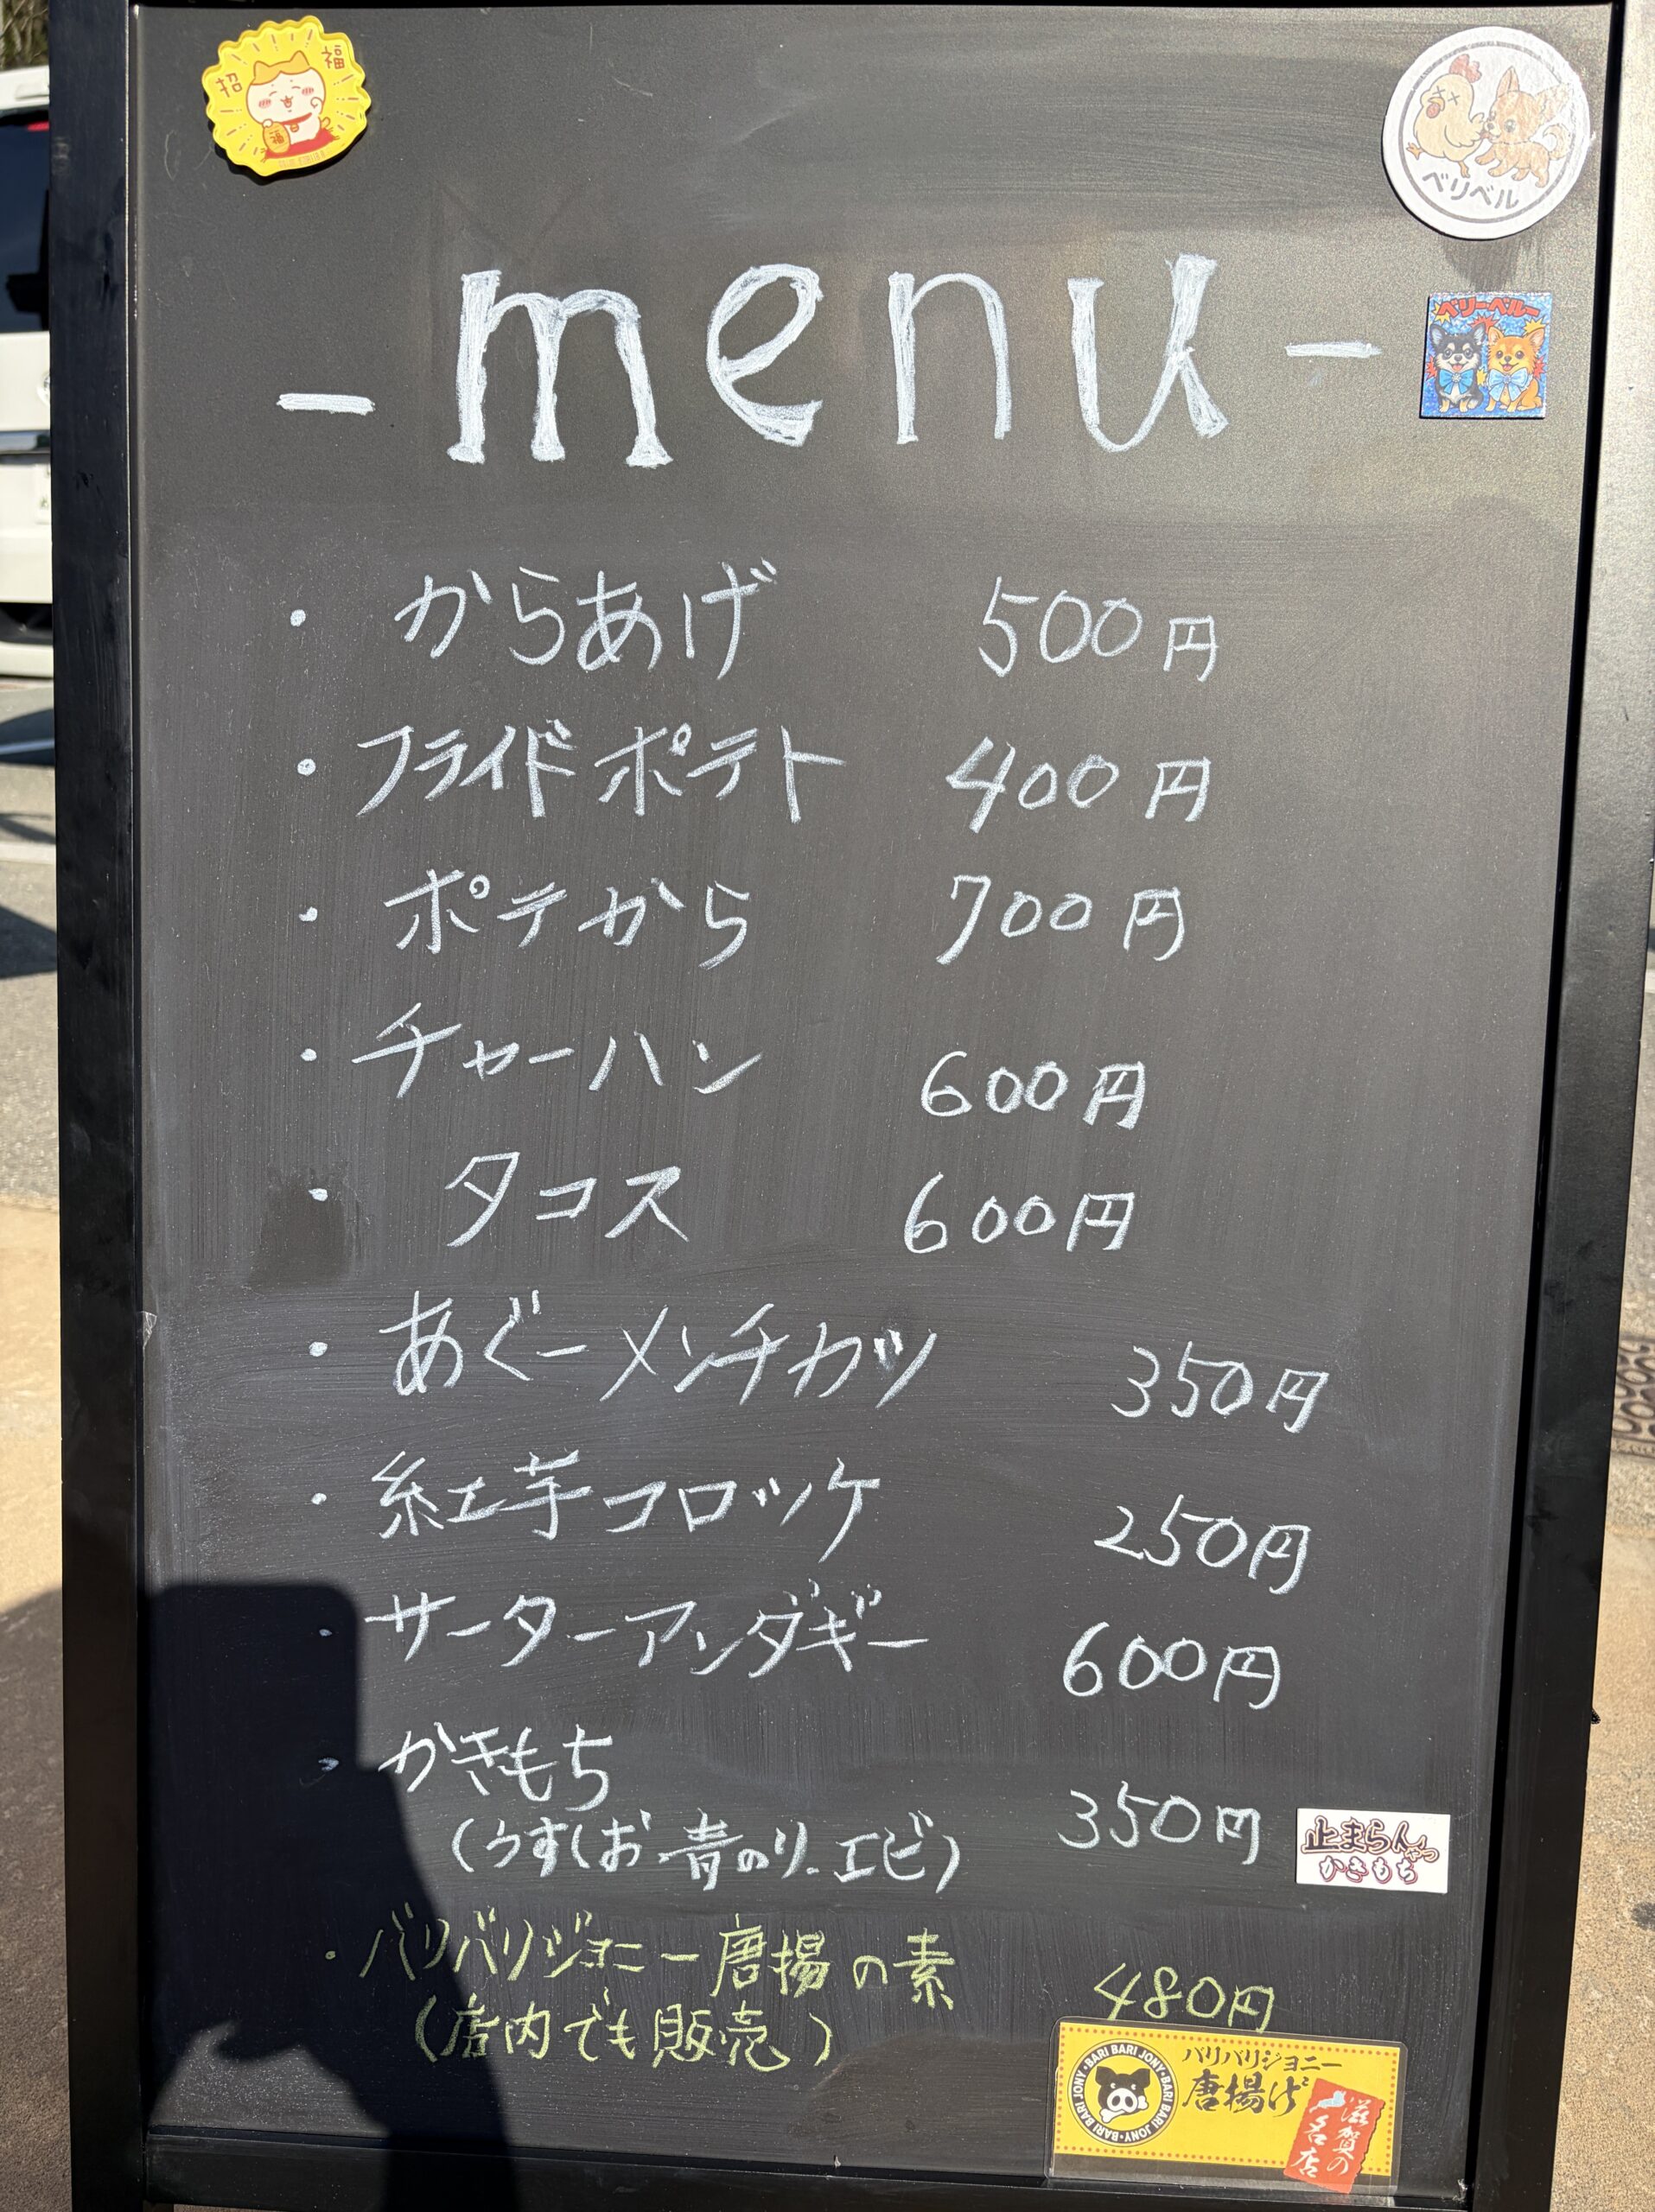 招福
福
ベリベル
ベリーベルー
- menu -
・からあげ 500円
・フライドポテト 400円
・ポテから 700円
・チャーハン 600円
・タコス 600円
・あぐーメンチカツ 350円
・紅芋コロッケ 250円
・サーターアンダギー 600円
・かきもち 350円
(うすしお・青のり・エビ)
止まらんやつ
かきもち
・バリバリジョニー唐揚の素 480円
(店内でも販売)
BARI BARI JONY・BARI BARI JONY・BARI BARI JONY
バリバリジョニー
唐揚げ
滋賀の
名店